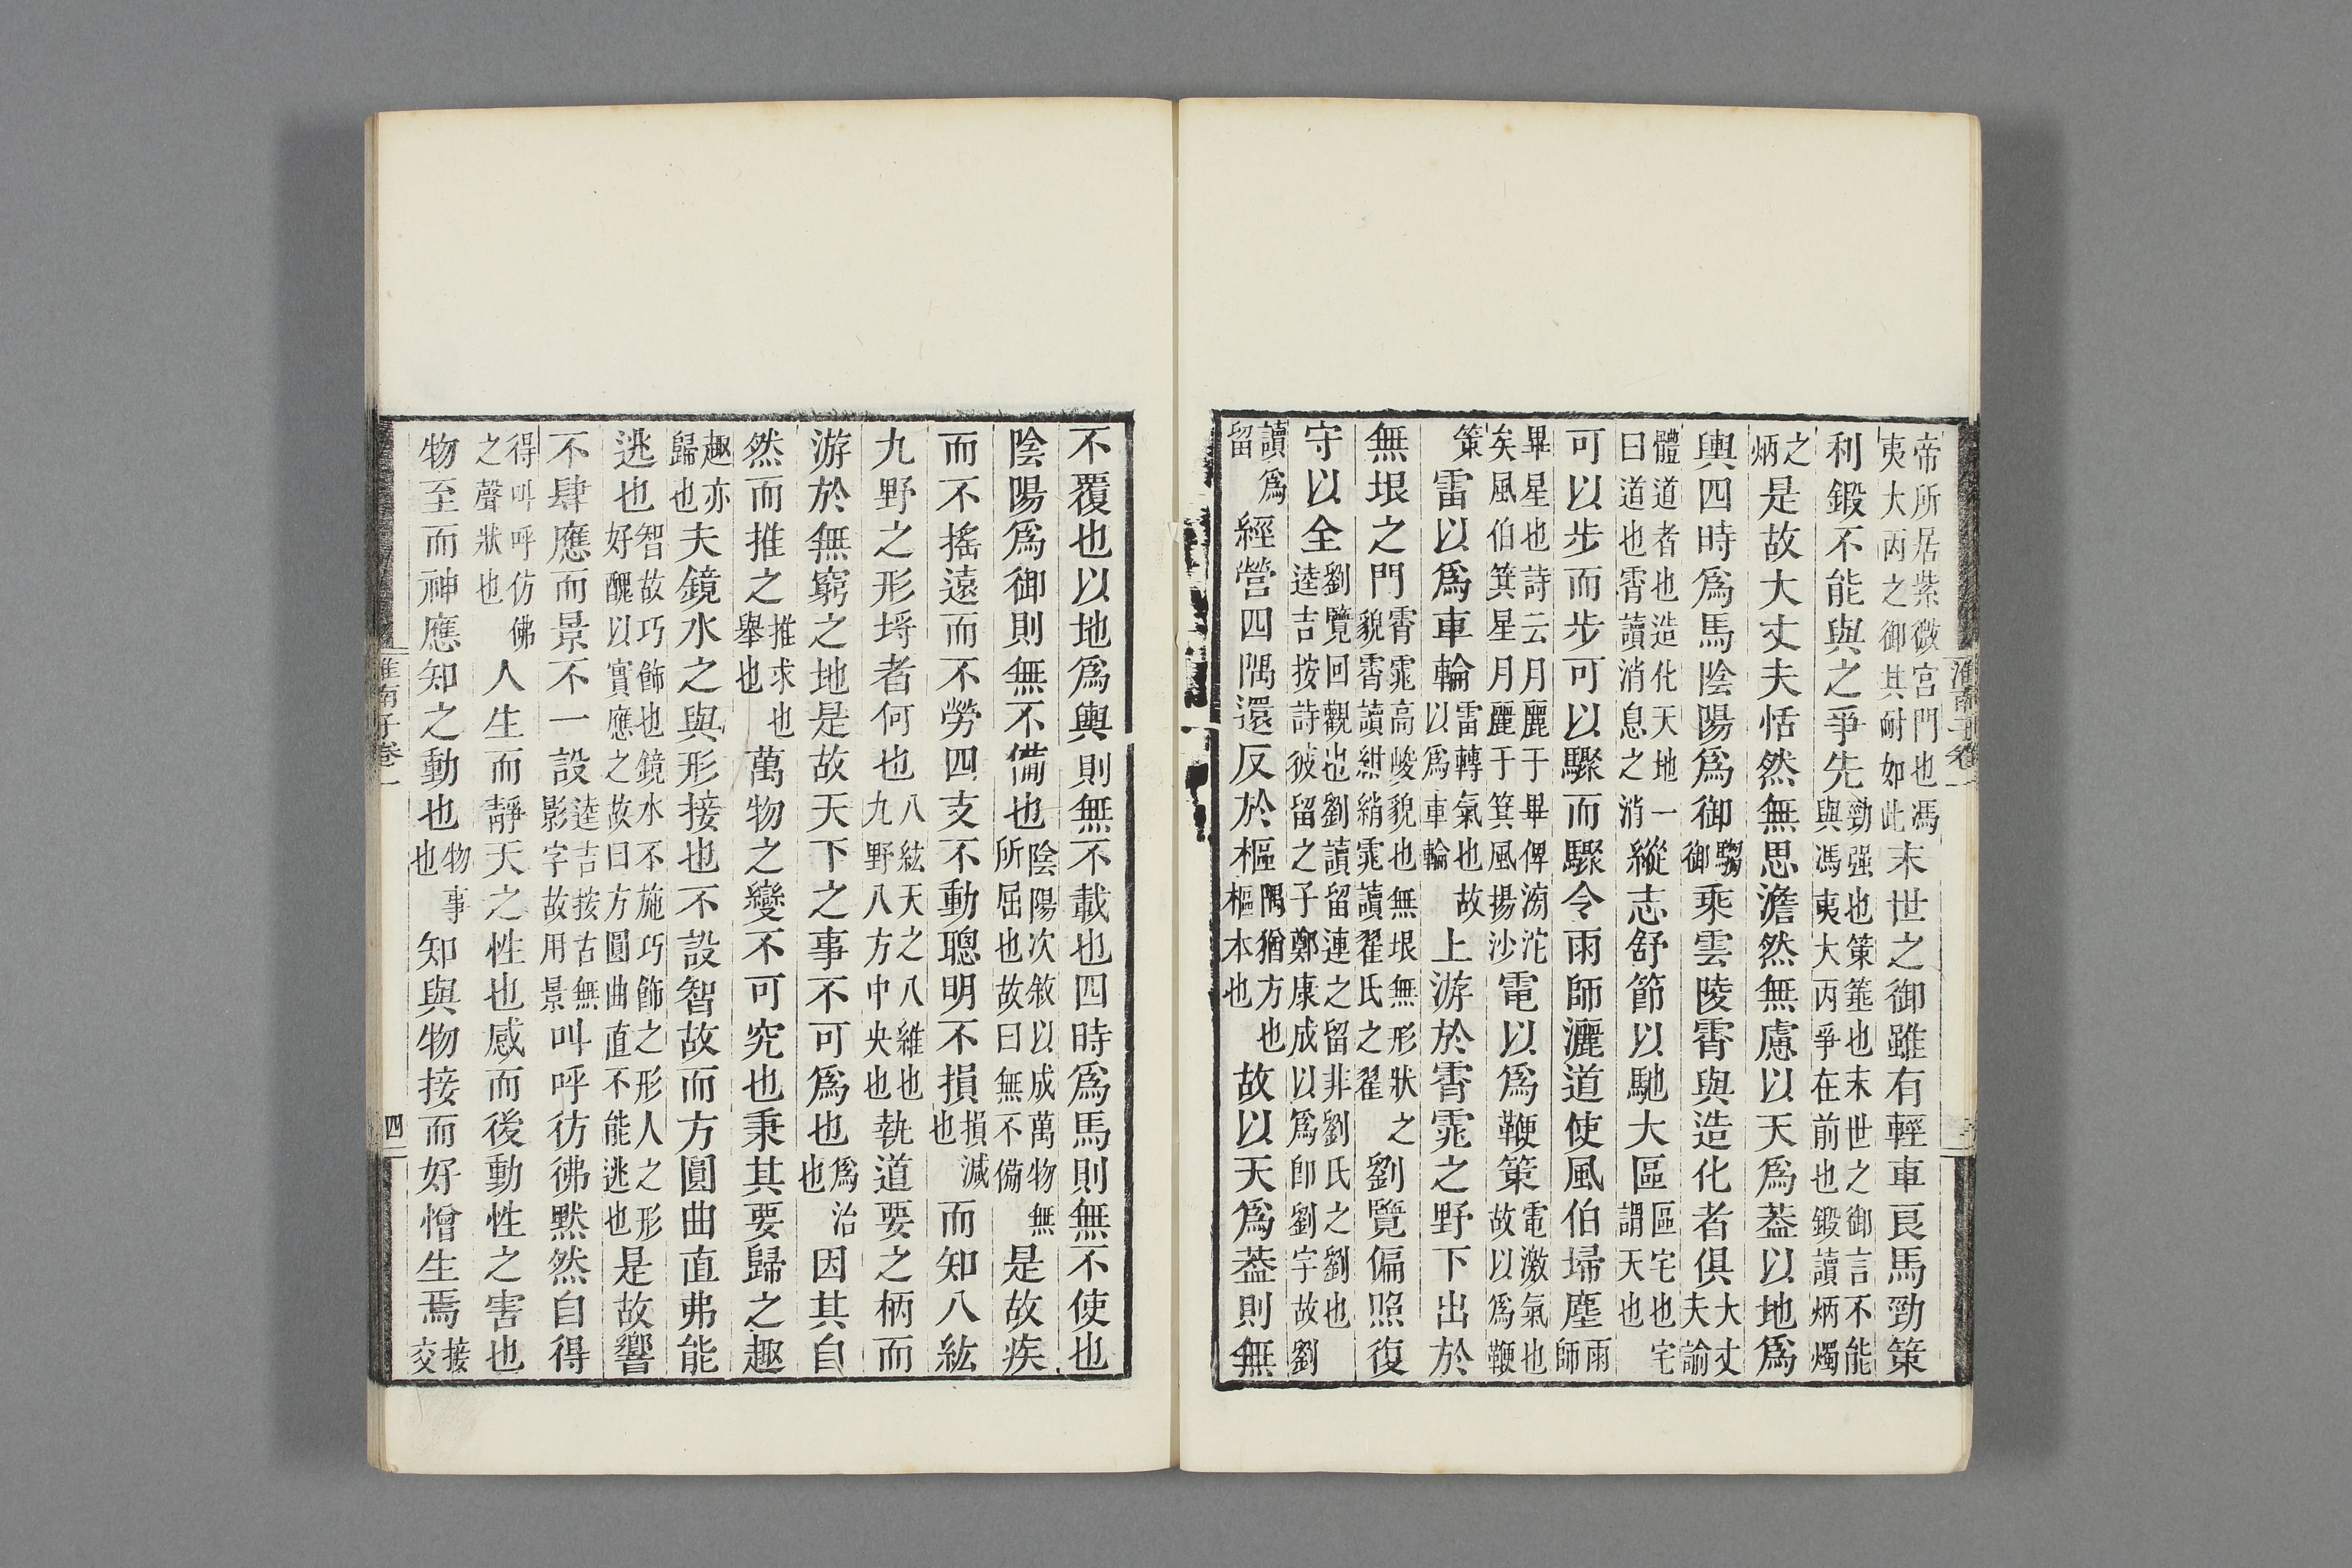 帝所居紫微宮門也馮夷大丙之御其耐如此末世之御雖有輕車良馬勁策
利鍛不能與之爭先勁强也策箠也末世之御言不能與馮夷大丙爭在前也鍛讀炳燭
之炳是故大丈夫恬然無思澹然無慮以天爲葢以地爲
輿四時爲馬陰陽爲御騶御乘雲陵霄與造化者俱大丈夫諭
體道者也造化天地一曰道也霄讀消息之消縱志舒節以馳大區區宅也宅謂天也
可以步而步可以驟而驟令雨師灑道使風伯埽塵雨師
畢星也詩云月麗于畢俾滂沱矣風伯箕星月麗于箕風揚沙電以爲鞭策電激氣也故以爲鞭
策雷以爲車輪雷轉氣也故以爲車輪上游於霄雿之野下出於
無垠之門霄雿高峻貌也無垠無形狀之貌霄讀紺綃雿讀翟氏之翟劉覽偏照復
守以全劉覽回觀也劉讀留連之留非劉氏之劉也逵吉按詩彼留之子鄭康成以爲卽劉字故劉
讀爲留經營四隅還反於樞隅猶方也樞本也故以天爲葢則無
淮南子卷一
三
不覆也以地爲輿則無不載也四時爲馬則無不使也
陰陽爲御則無不備也陰陽次敘以成萬物無所屈也故曰無不備是故疾
而不搖遠而不勞四支不動聰明不損損減也而知八紘
九野之形埒者何也八紘天之八維也九野八方中央也執道要之柄而
游於無窮之地是故天下之事不可爲也爲治也因其自
然而推之推求也舉也萬物之變不可究也秉其要歸之趣
趣亦歸也夫鏡水之與形接也不設智故而方圓曲直弗能
逃也智故巧飾也鏡水不施巧飾之形人之形好醜以實應之故曰方圓曲直不能逃也是故響
不肆應而景不一設逵吉按古無影字故用景叫呼彷彿默然自得
得叫呼仿佛之聲狀也人生而靜天之性也感而後動性之害也
物至而神應知之動也物事也知與物接而好憎生焉接交
淮南子卷一
四